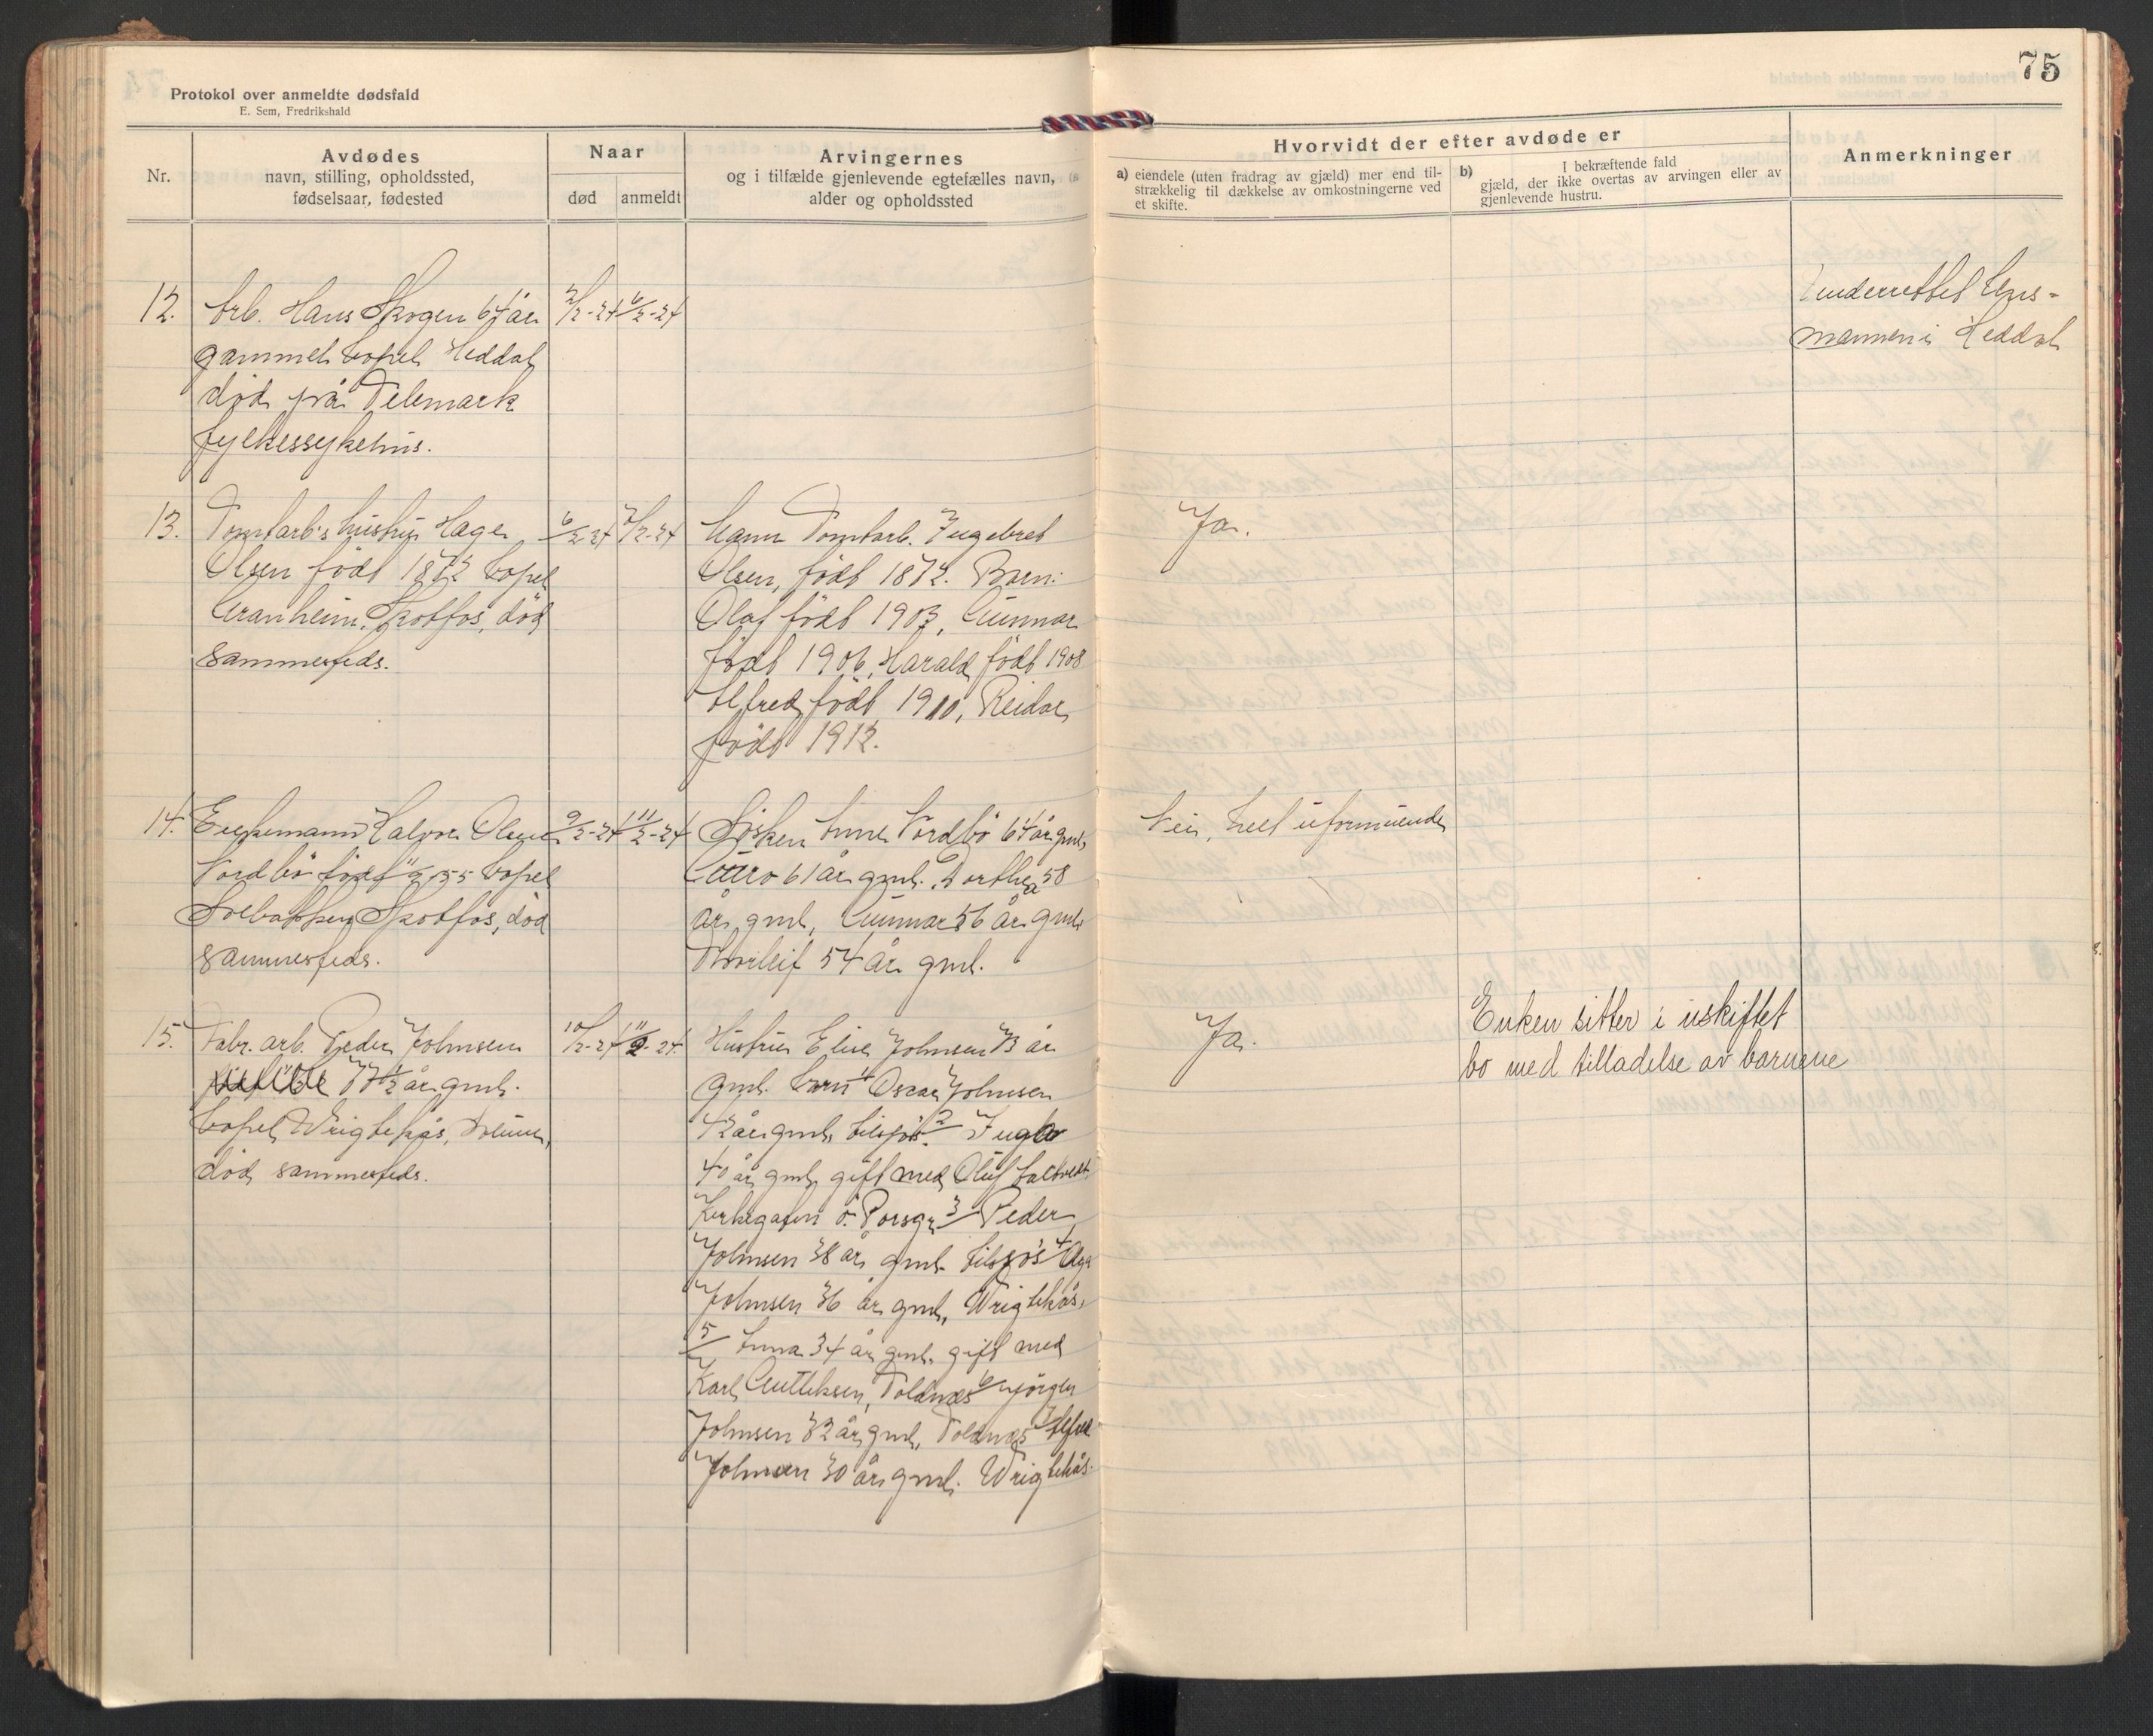 75
Protokol over anmeldte dødsfald
E. Sem, Fredrikshald
Nr.
Avdødes
navn, stilling, opholdssted,
fødselsaar, fødested
Naar
død
anmeldt
Arvingernes
og i tilfælde gjenlevende egtefælles navn,
alder og opholdssted
Hvorvidt der efter avdøde er
a) eiendele (uten fradrag av gjæld) mer end til-
strækkelig til dækkelse av omkostningerne ved
et skifte.
b) I bekræftende fald
gjæld, der ikke overtas av arvingen eller av
gjenlevende hustru.
Anmerkninger
12.
Arb. Hans Skogen 64 år
gammel bopel Heddal
död på Telemark
fylkessykehus.
2/2-24
6/2-24
Underrettet lens-
mannen i Heddal
13.
Tomtarb.s hustru Hage
Olsen födt 1872 bopel
Granheim, Skotfos, död
sammesteds.
6/2-24
7/2-24
Mann Tomtarb. Ingebret
Olsen, födt 1872. Barn:
Olaf födt 1903, Gunnar
födt 1906, Harald födt 1908
Alfred födt 1910, Reidar
födt 1912.
Ja.
14.
Enkemann Halvor Olsen
Nordbö födt 55 bopel
Solbakken Skotfos, död
sammesteds.
9/2-24
11/2-24
Sösken Anne Nordbö 64 år gml.
Guro 61 år gml. Dorthea 58
år gml, Gunnar 56 år gml.
Thorleif 54 år gml.
Nei, helt uformuende
15.
Fabr. arb. Peder Johnsen
77 1/2 år gml.
bopel Wrigtehås, Solum,
död sammesteds.
10/2-24
11/2-24.
Hustru Elise Johnsen 73 år
gml. barn 1/ Oscar Johnsen
42 år gml. tilsjös. 2/ Inga
40 år gml. gift med Oluf
Kirkegaten ö. Porsgr. 3/ Peder
Johnsen 38 år gml. tilsjös 4/ Aga
Johnsen 36 år gml, Wrigtehås,
5/ Anna 34 år gml. gift med
Karl Gulliksen, Toldnæs 6/ Jörgen
Johnsen 32 år gml, Toldnæs 7/ Alfred
Johnsen 30 år gml. Wrigtehås.
Ja.
Enken sitter i uskiftet
bo med tilladelse av barnene